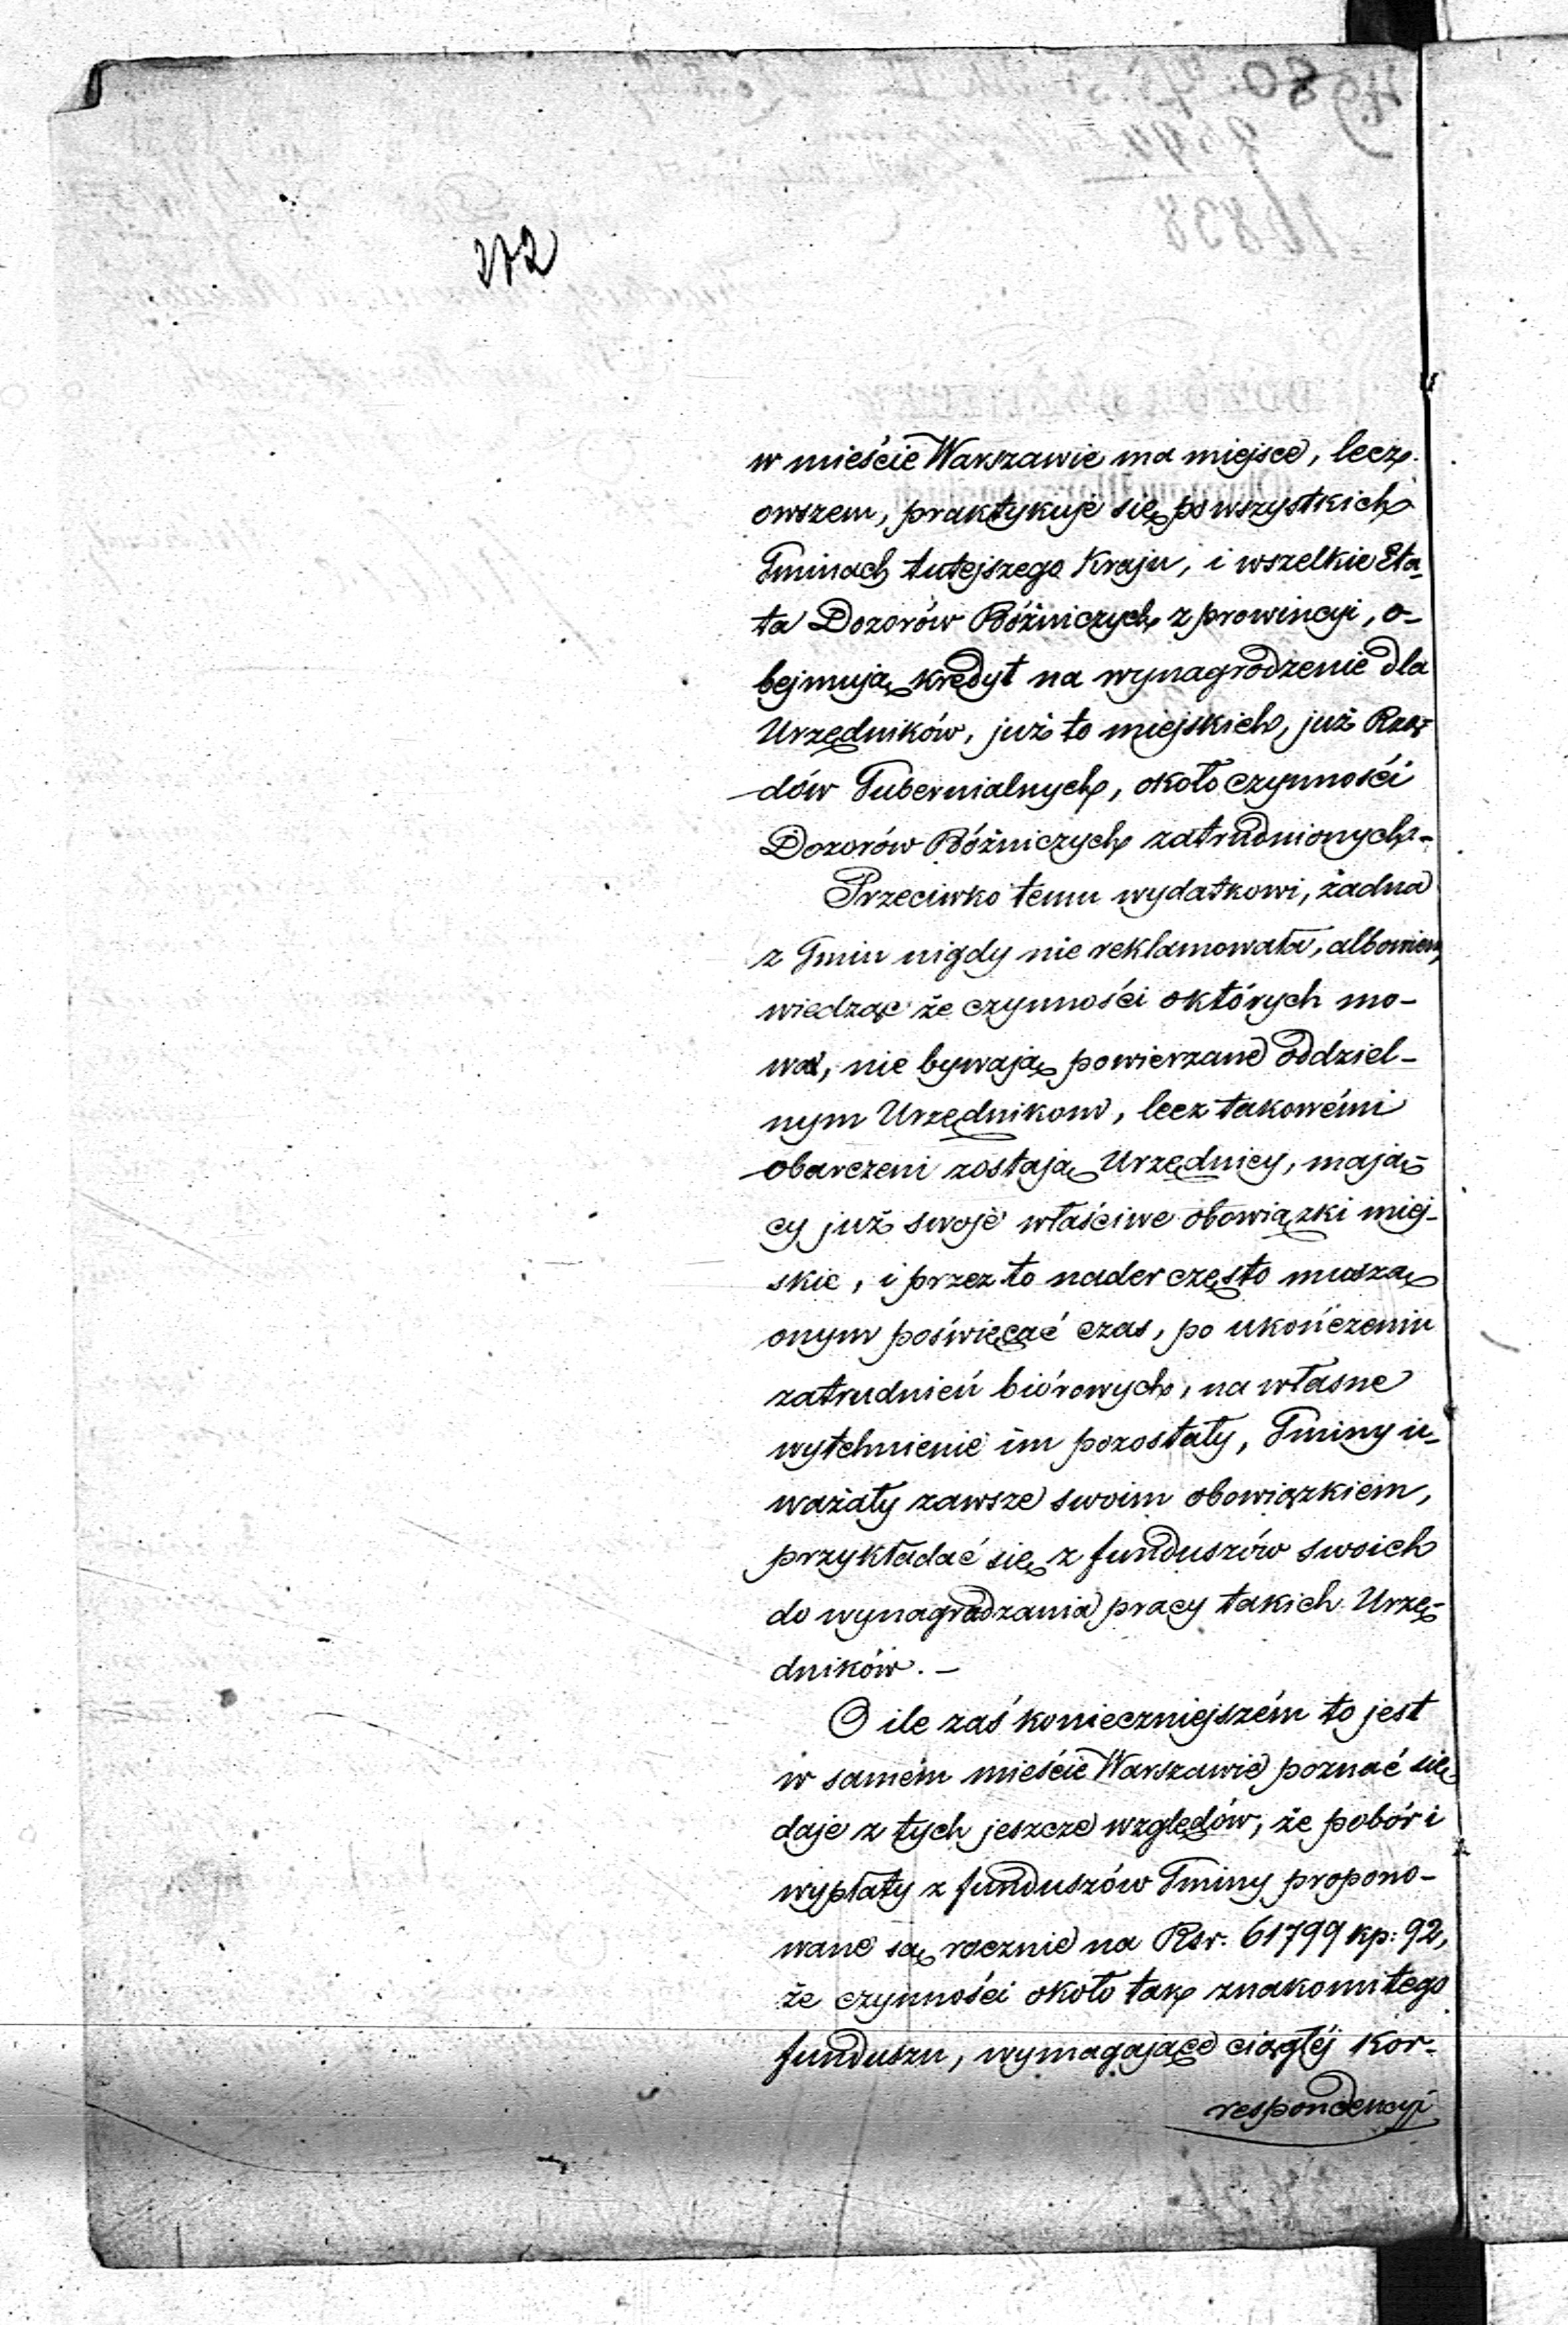 272
w mieście Warszawie ma miejsce, lecz
owszem, praktykuje się po wszystkich
Gminach tutejszego Kraju, i wszelkie Eta-
ta Dozorów Bóżniczych z prowincyi, o-
bejmują kredyt na wynagrodzenie dla
Urzędników, już to miejskich, już Rzą-
dów Gubernialnych, około czynności
Dozorów Bóżniczych zatrudnionych.-
Przeciwko temu wydatkowi, żadna
z Gmin nigdy nie reklamowała, albowiem,
wiedząc że czynności o których mo-
wa, nie bywają powierzane oddziel-
nym Urzędnikom, lecz takowémi
obarczeni zostają Urzędnicy, mają-
cy już swoje właściwe obowiązki miej-
skie, i przez to nader często muszą
onym poświęcać czas, po ukończeniu
zatrudnień biórowych, na własne
wytchnienie im pozostały, Gminy u-
ważały zawsze swoim obowiązkiem,
przykładać się z funduszów swoich
do wynagradzania pracy takich Urzę-
dników. -
O ile zaś konieczniejszém to jest
w samém mieście Warszawie poznać się
daje z tych jeszcze względów, że pobór i
wypłaty z funduszów Gminy propono-
wane są rocznie na Rsr. 61799 kp: 92,
że czynności około tak znakomitego
funduszu, wymagające ciągłéj kor-
respondencyi